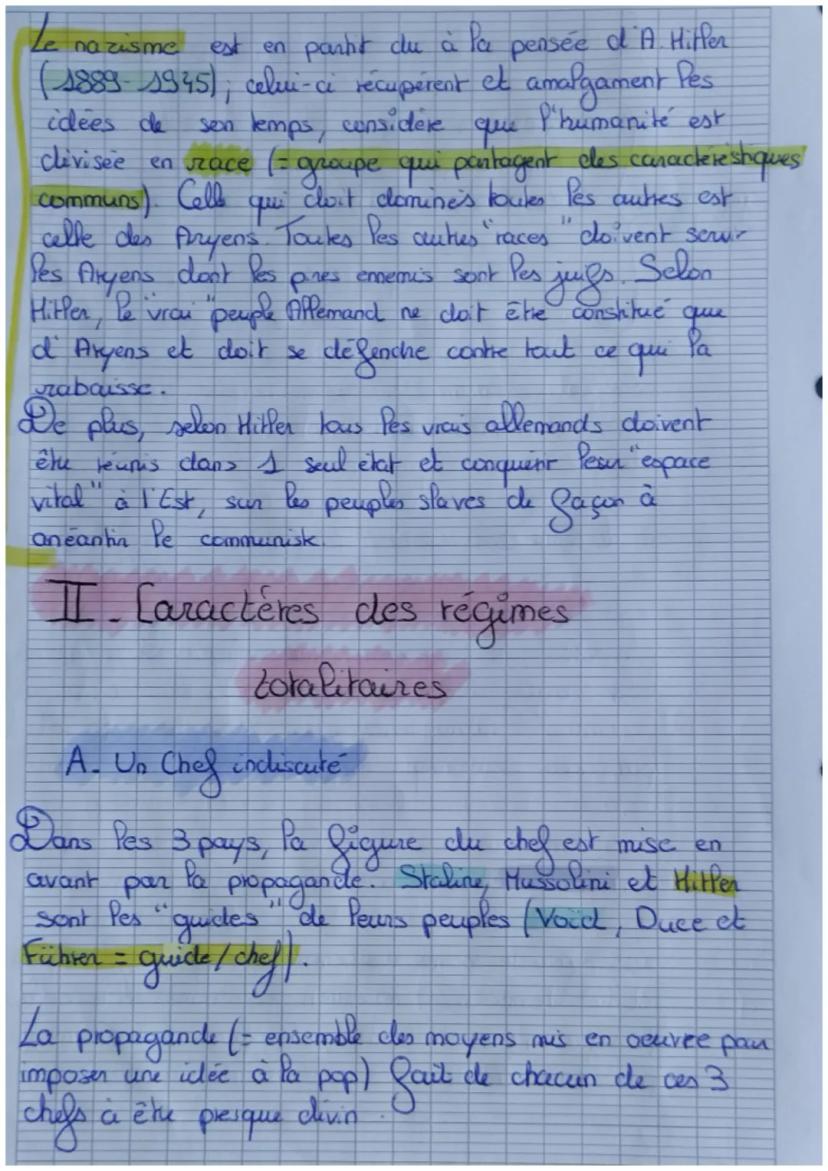 Le nazisme est en partit du à la pensée d'A. Hitler
(1889-1945), celui-ci récupérent et amalgament les
idées de son temps, considère que l'humanité est
divisée en race (= groupe qui partagent des caractéristiques
communs). Celle qui doit dominés toutes les autres est
celle des Aryens. Toutes les autres "races" doivent servir
les Aryens dont les pires ennemis sont les juifs. Selon
Hitler, le "vrai" peuple Allemand ne doit être constitué que
d'Aryens et doit se défendre contre tout ce qui la
rabaisse.
De plus, selon Hitler tous les vrais allemands doivent
être réunis dans 1 seul état et conquérir leur "espace
vital" à l'Est, sur les peuples slaves de façon à
anéantir le communisk.
II - Caractères des régimes
totalitaires
A - Un Chef indiscuté
Dans les 3 pays, la figure du chef est mise en
avant par la propagande. Staline, Mussolini et Hitler
sont les "guides" de leurs peuples (Vojd, Duce et
Führer = guide/chef).
La propagande (= ensemble des moyens mis en oeuvre pour
imposer une idée à la pop) fait de chacun de ces 3
chefs à être presque divin.